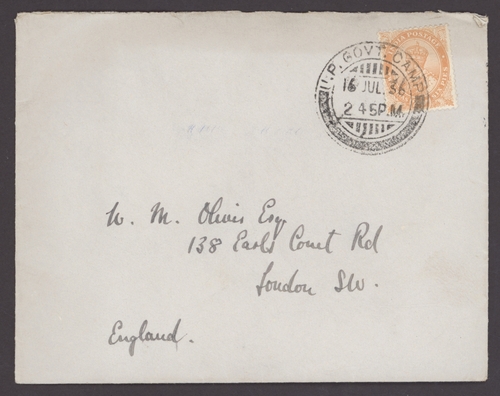 INDIA POSTAGE
U.P. GOVT. CAMP
16 JUL. 36
2 45 P.M.
W. M. Olivis Esq.
138 Earls Court Rd
London S.W.
England.